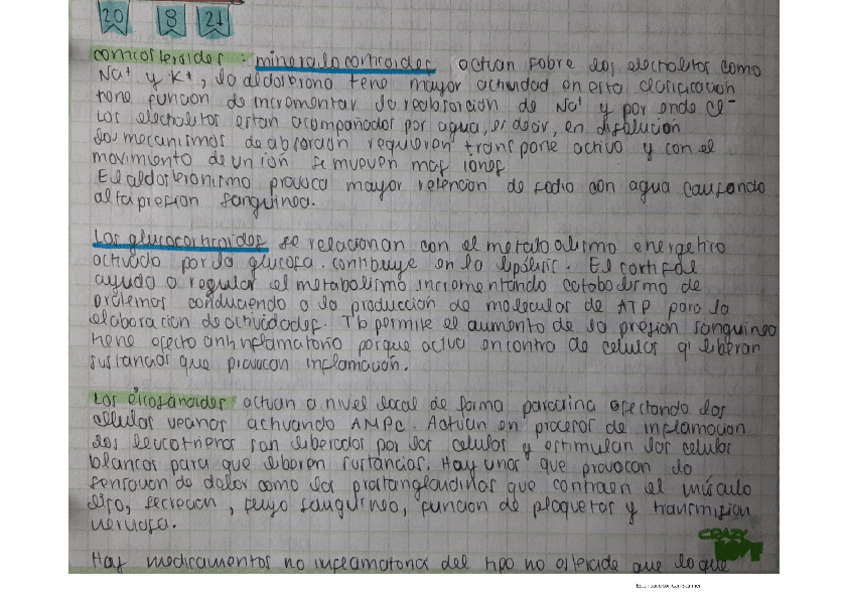 20 8 21
corticosteroides: mineralocorticoides actuan sobre los electrolitos como
Na+ y K+, la aldosterona tene mayor actividad en esta clasificación
tene funcion de incrementar la reabsorcion de Na+ y por ende Cl-
Los electrolitos estan acompañados por agua, es decir, en disolución
los mecanismos de absorcion requieren transporte activo y con el
movimiento de un ión se mueven mas iones
El aldosteronismo provoca mayor retencion de sodio con agua causando
alta presion sanguinea.
Los glucocorticoides se relacionan con el metabolismo energetico
activado por la glucosa. contribuye en la lipólisis. El cortisol
ayuda a regular el metabolismo incrementando catabolismo de
proteinas conduciendo a la producción de moleculas de ATP para la
elaboracion de actividades. Tb permite el aumento de la presion sanguinea
tiene efecto antiinflamatorio porque actua en contra de celulas q' liberan
sustancias que provocan inflamación.
Los eicosanoides actuan a nivel local de forma paracrina afectando las
células vecinas activando AMPC. Actúan en procesos de inflamacion
los leucotrienos son liberados por las celulas y estimulan las celulas
blancas para que liberen sustancias. Hay unas que provocan la
sensacion de dolor como las prostanglandinas que contraen el músculo
liso, secrecion, flujo sanguineo, funcion de plaquetas y transmision
nerviosa.
CRAZY
Hay medicamentos no inflamatorios del tipo no esteroide que lo que